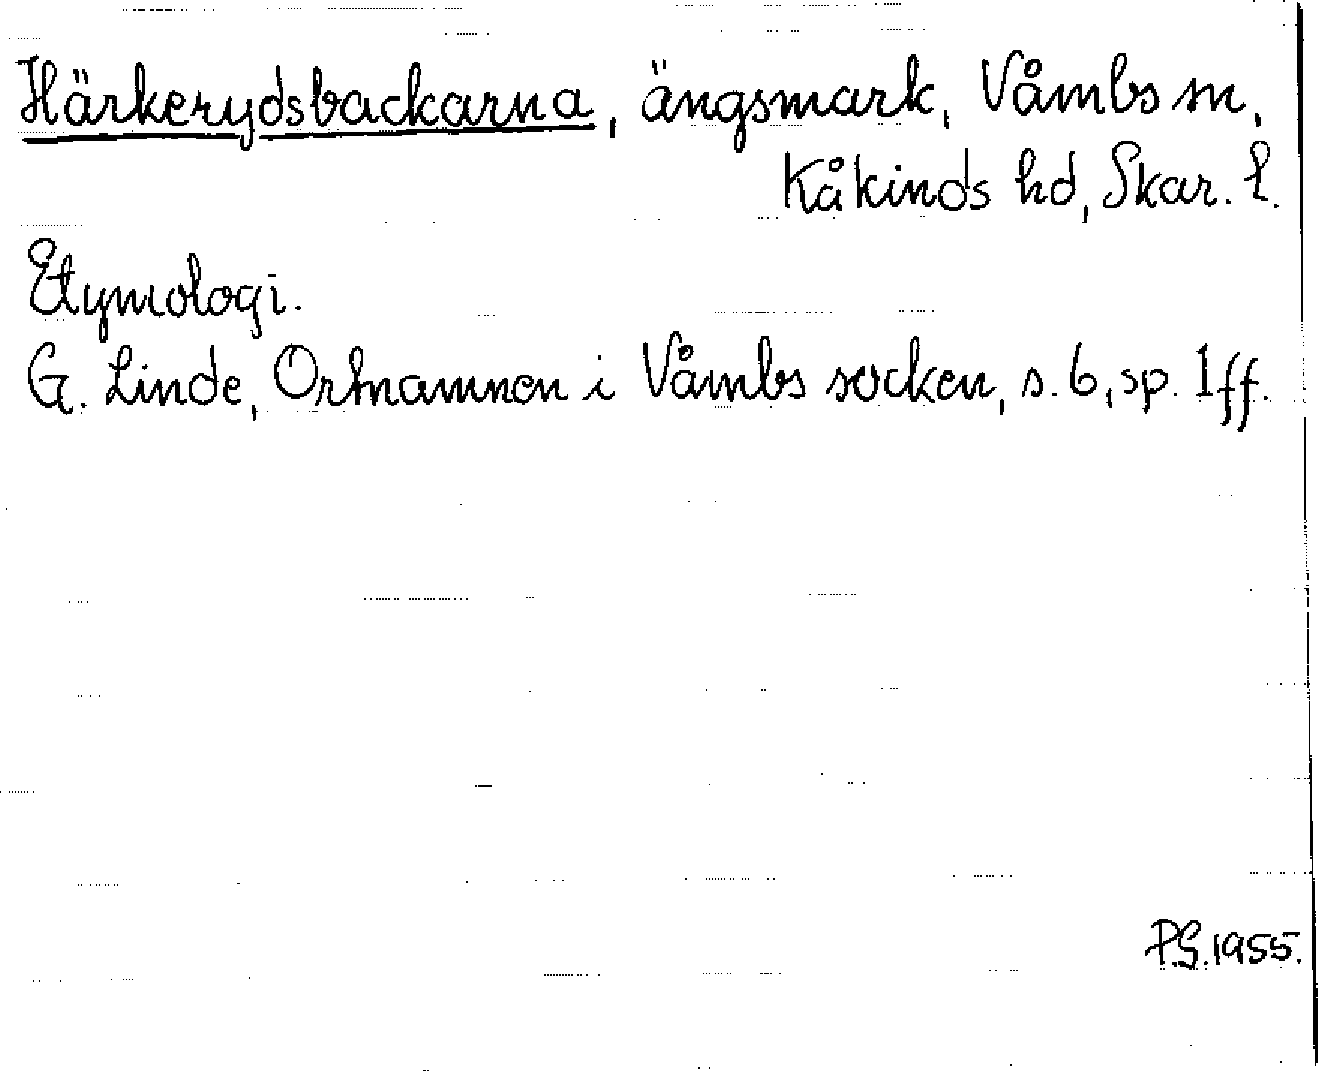 Härkerydsbackarna, ängsmark, Våmbs sn,
Kåkinds hd, Skar. l.
Etymologi.
G. Linde, Ortnamnen i Våmbs socken, s. 6, sp. 1 ff.
P.G. 1955.